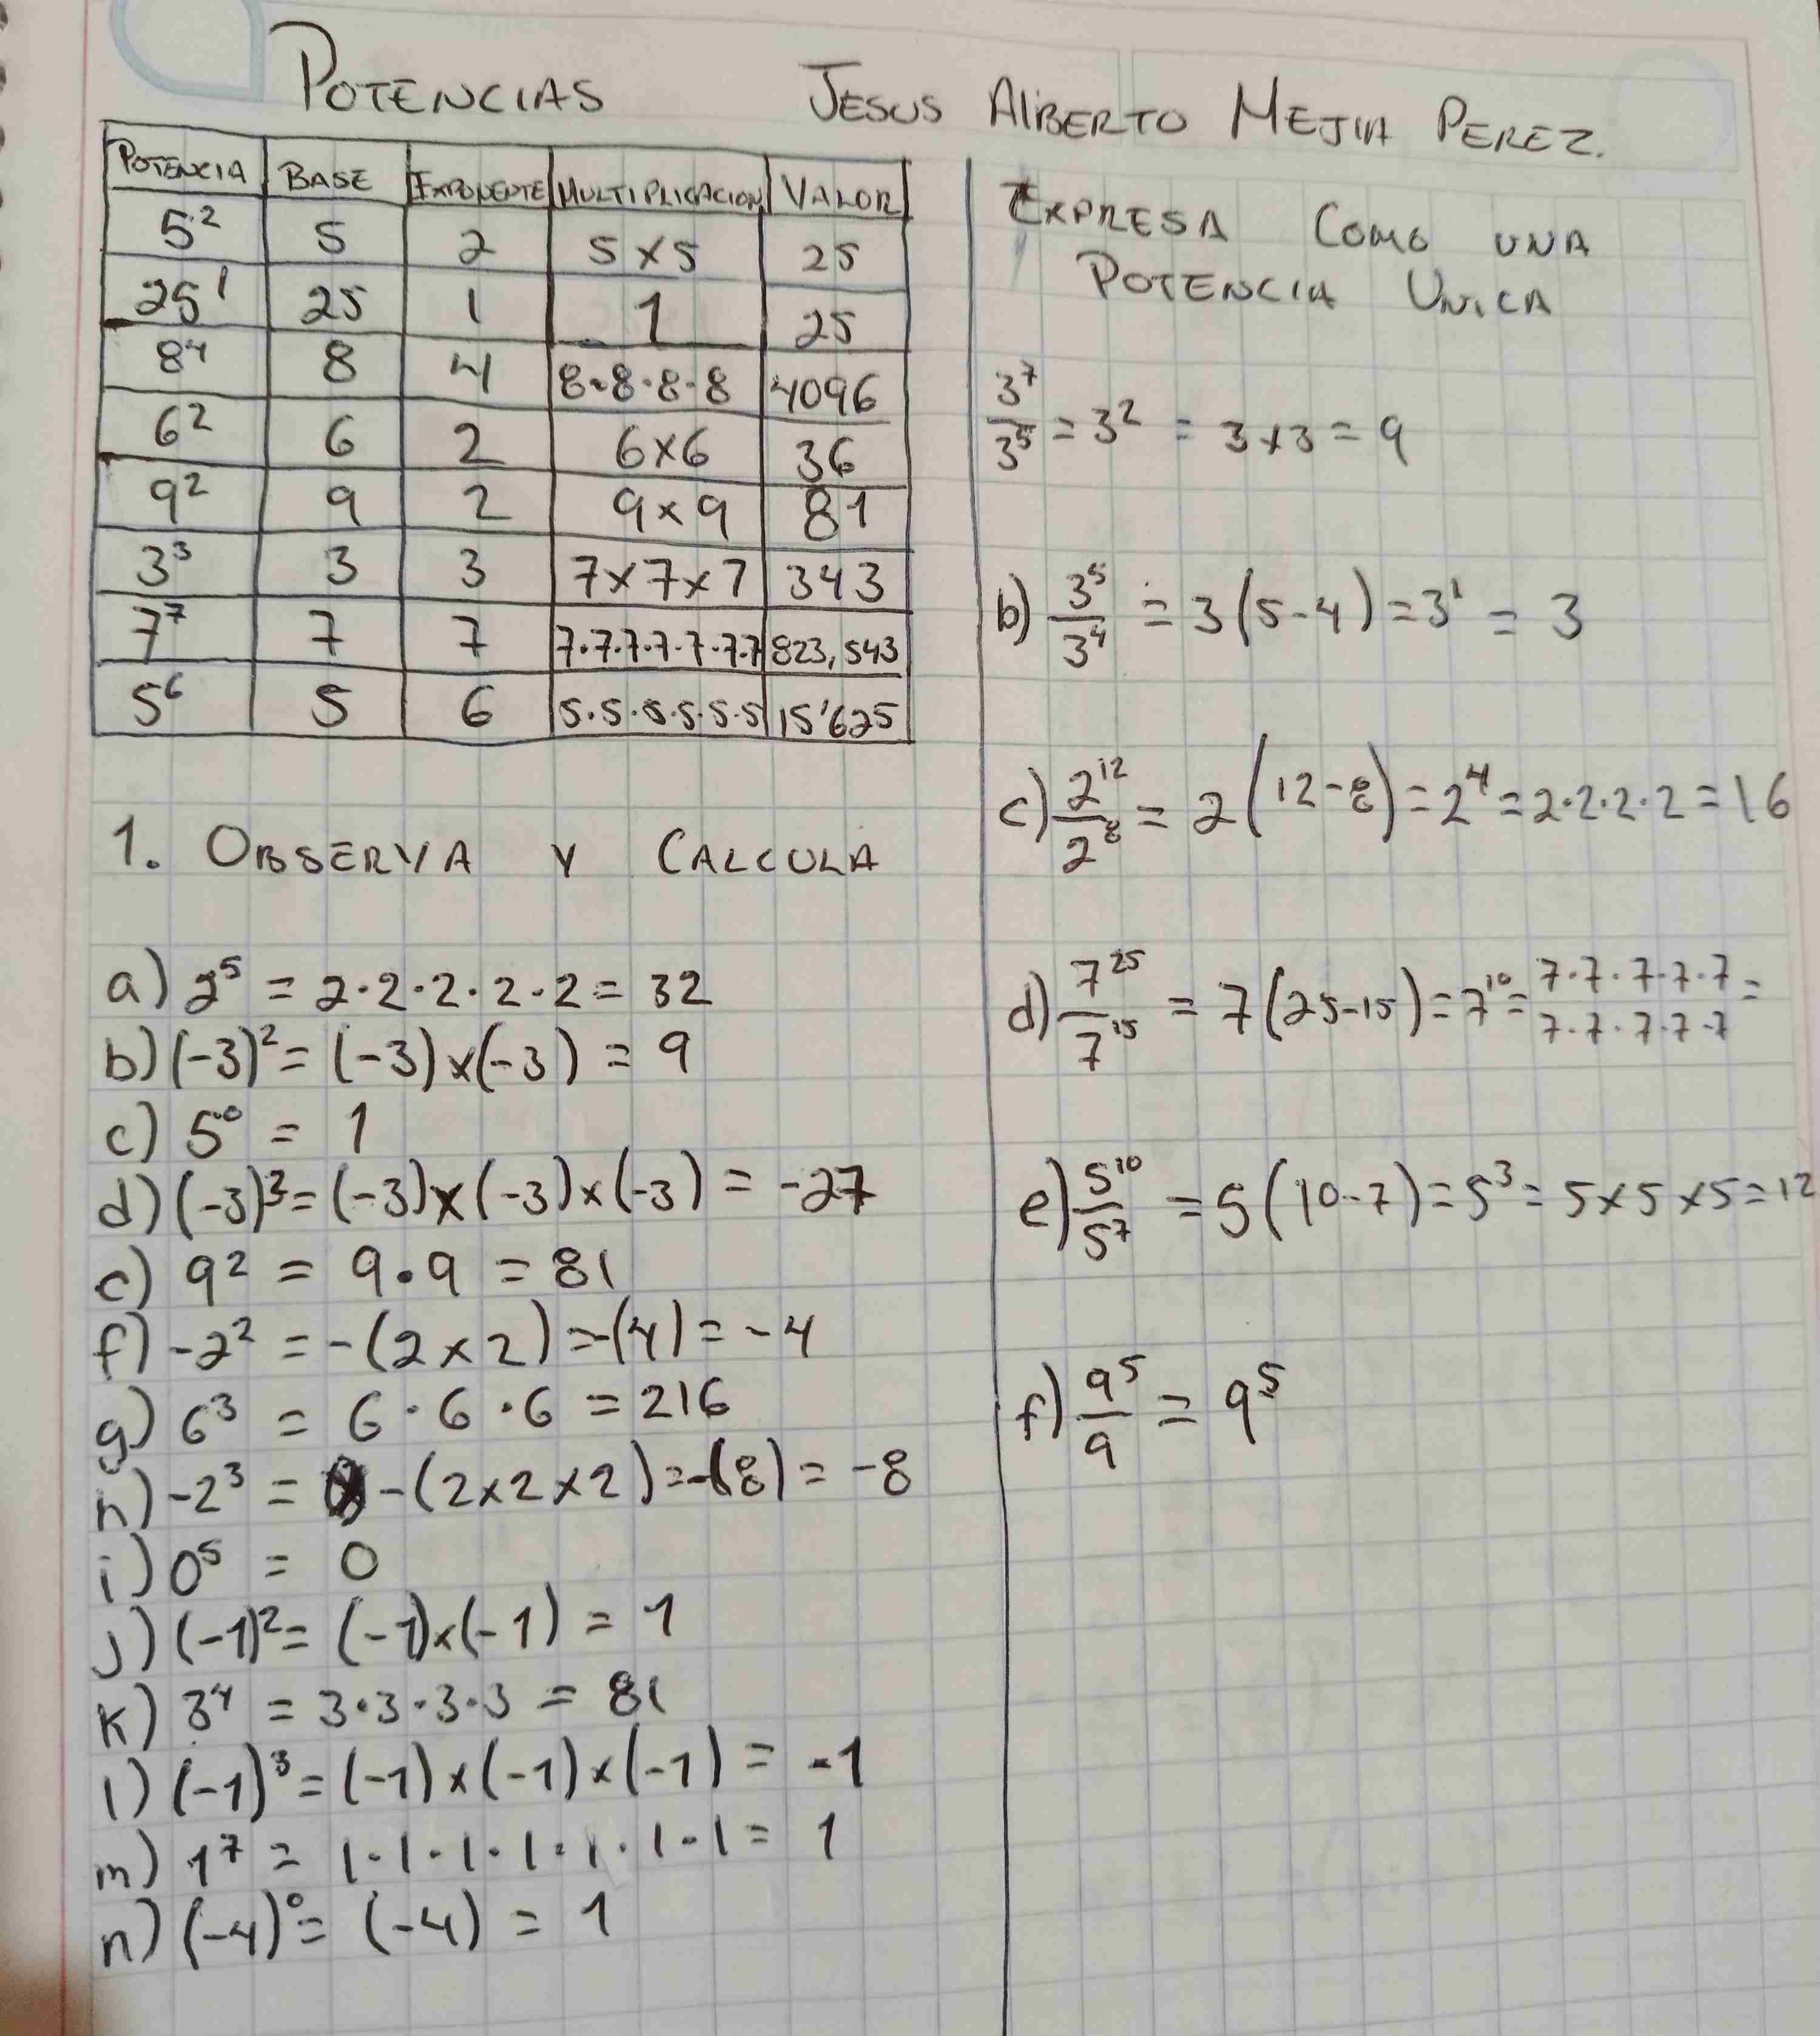 POTENCIAS JESUS AlBERTO MEJIA PEREZ.
POTENCIA BASE EXPONENTE MULTIPLICACION VALOR
5² 5 2 5 x 5 25
25¹ 25 1 1 25
8⁴ 8 4 8·8·8·8 4096
6² 6 2 6x6 36
9² 9 2 9 x 9 81
3³ 3 3 7x7x7 343
7⁷ 7 7 7·7·7·7·7·7·7 823,543
5⁶ 5 6 5·5·5·5·5·5 15'625
1. OBSERVA Y CALCULA
a) 2⁵ = 2·2·2·2·2 = 32
b) (-3)² = (-3)x(-3) = 9
c) 5⁰ = 1
d) (-3)³ = (-3)x(-3)x(-3) = -27
e) 9² = 9·9 = 81
f) -2² = -(2x2) = -(4) = -4
g) 6³ = 6·6·6 = 216
h) -2³ = -(2x2x2) = -(8) = -8
i) 0⁵ = 0
j) (-1)² = (-1)x(-1) = 1
k) 3⁴ = 3·3·3·3 = 81
l) (-1)³ = (-1)x(-1)x(-1) = -1
m) 1⁷ = 1·1·1·1·1·1·1 = 1
n) (-4)⁰ = (-4) = 1
EXPRESA COMO UNA
POTENCIA UNICA
3⁷/3⁵ = 3² = 3x3 = 9
b) 3⁵/3⁴ = 3(5-4) = 3¹ = 3
c) 2¹²/2⁸ = 2(12-8) = 2⁴ = 2·2·2·2 = 16
d) 7²⁵/7¹⁵ = 7(25-15) = 7¹⁰ = 7·7·7·7·7 =
7·7·7·7·7
e) 5¹⁰/5⁷ = 5(10-7) = 5³ = 5x5x5 = 12
f) 9⁵/9 = 9⁵